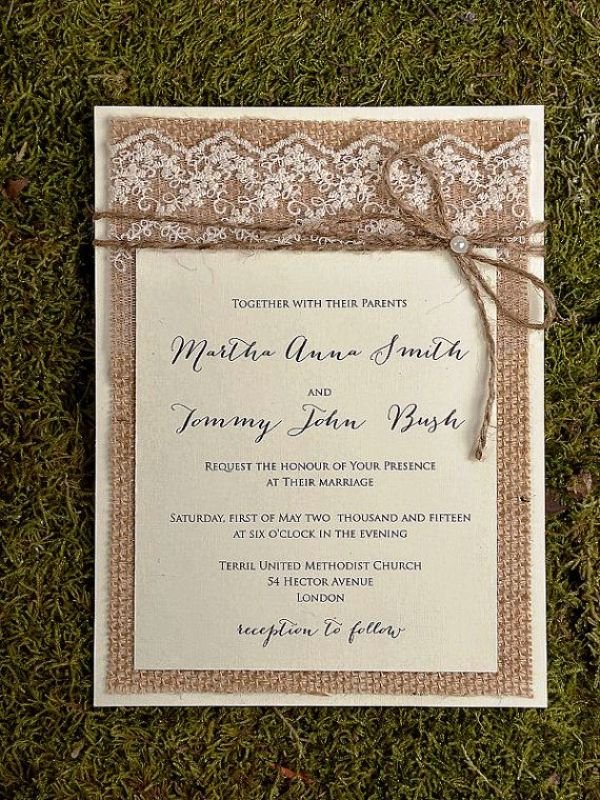 Together with their Parents
Martha Anna Smith
and
Tommy John Bush
Request the honour of Your Presence
at Their marriage
Saturday, first of May two thousand and fifteen
at six o'clock in the evening
Terril United Methodist Church
54 Hector Avenue
London
reception to follow